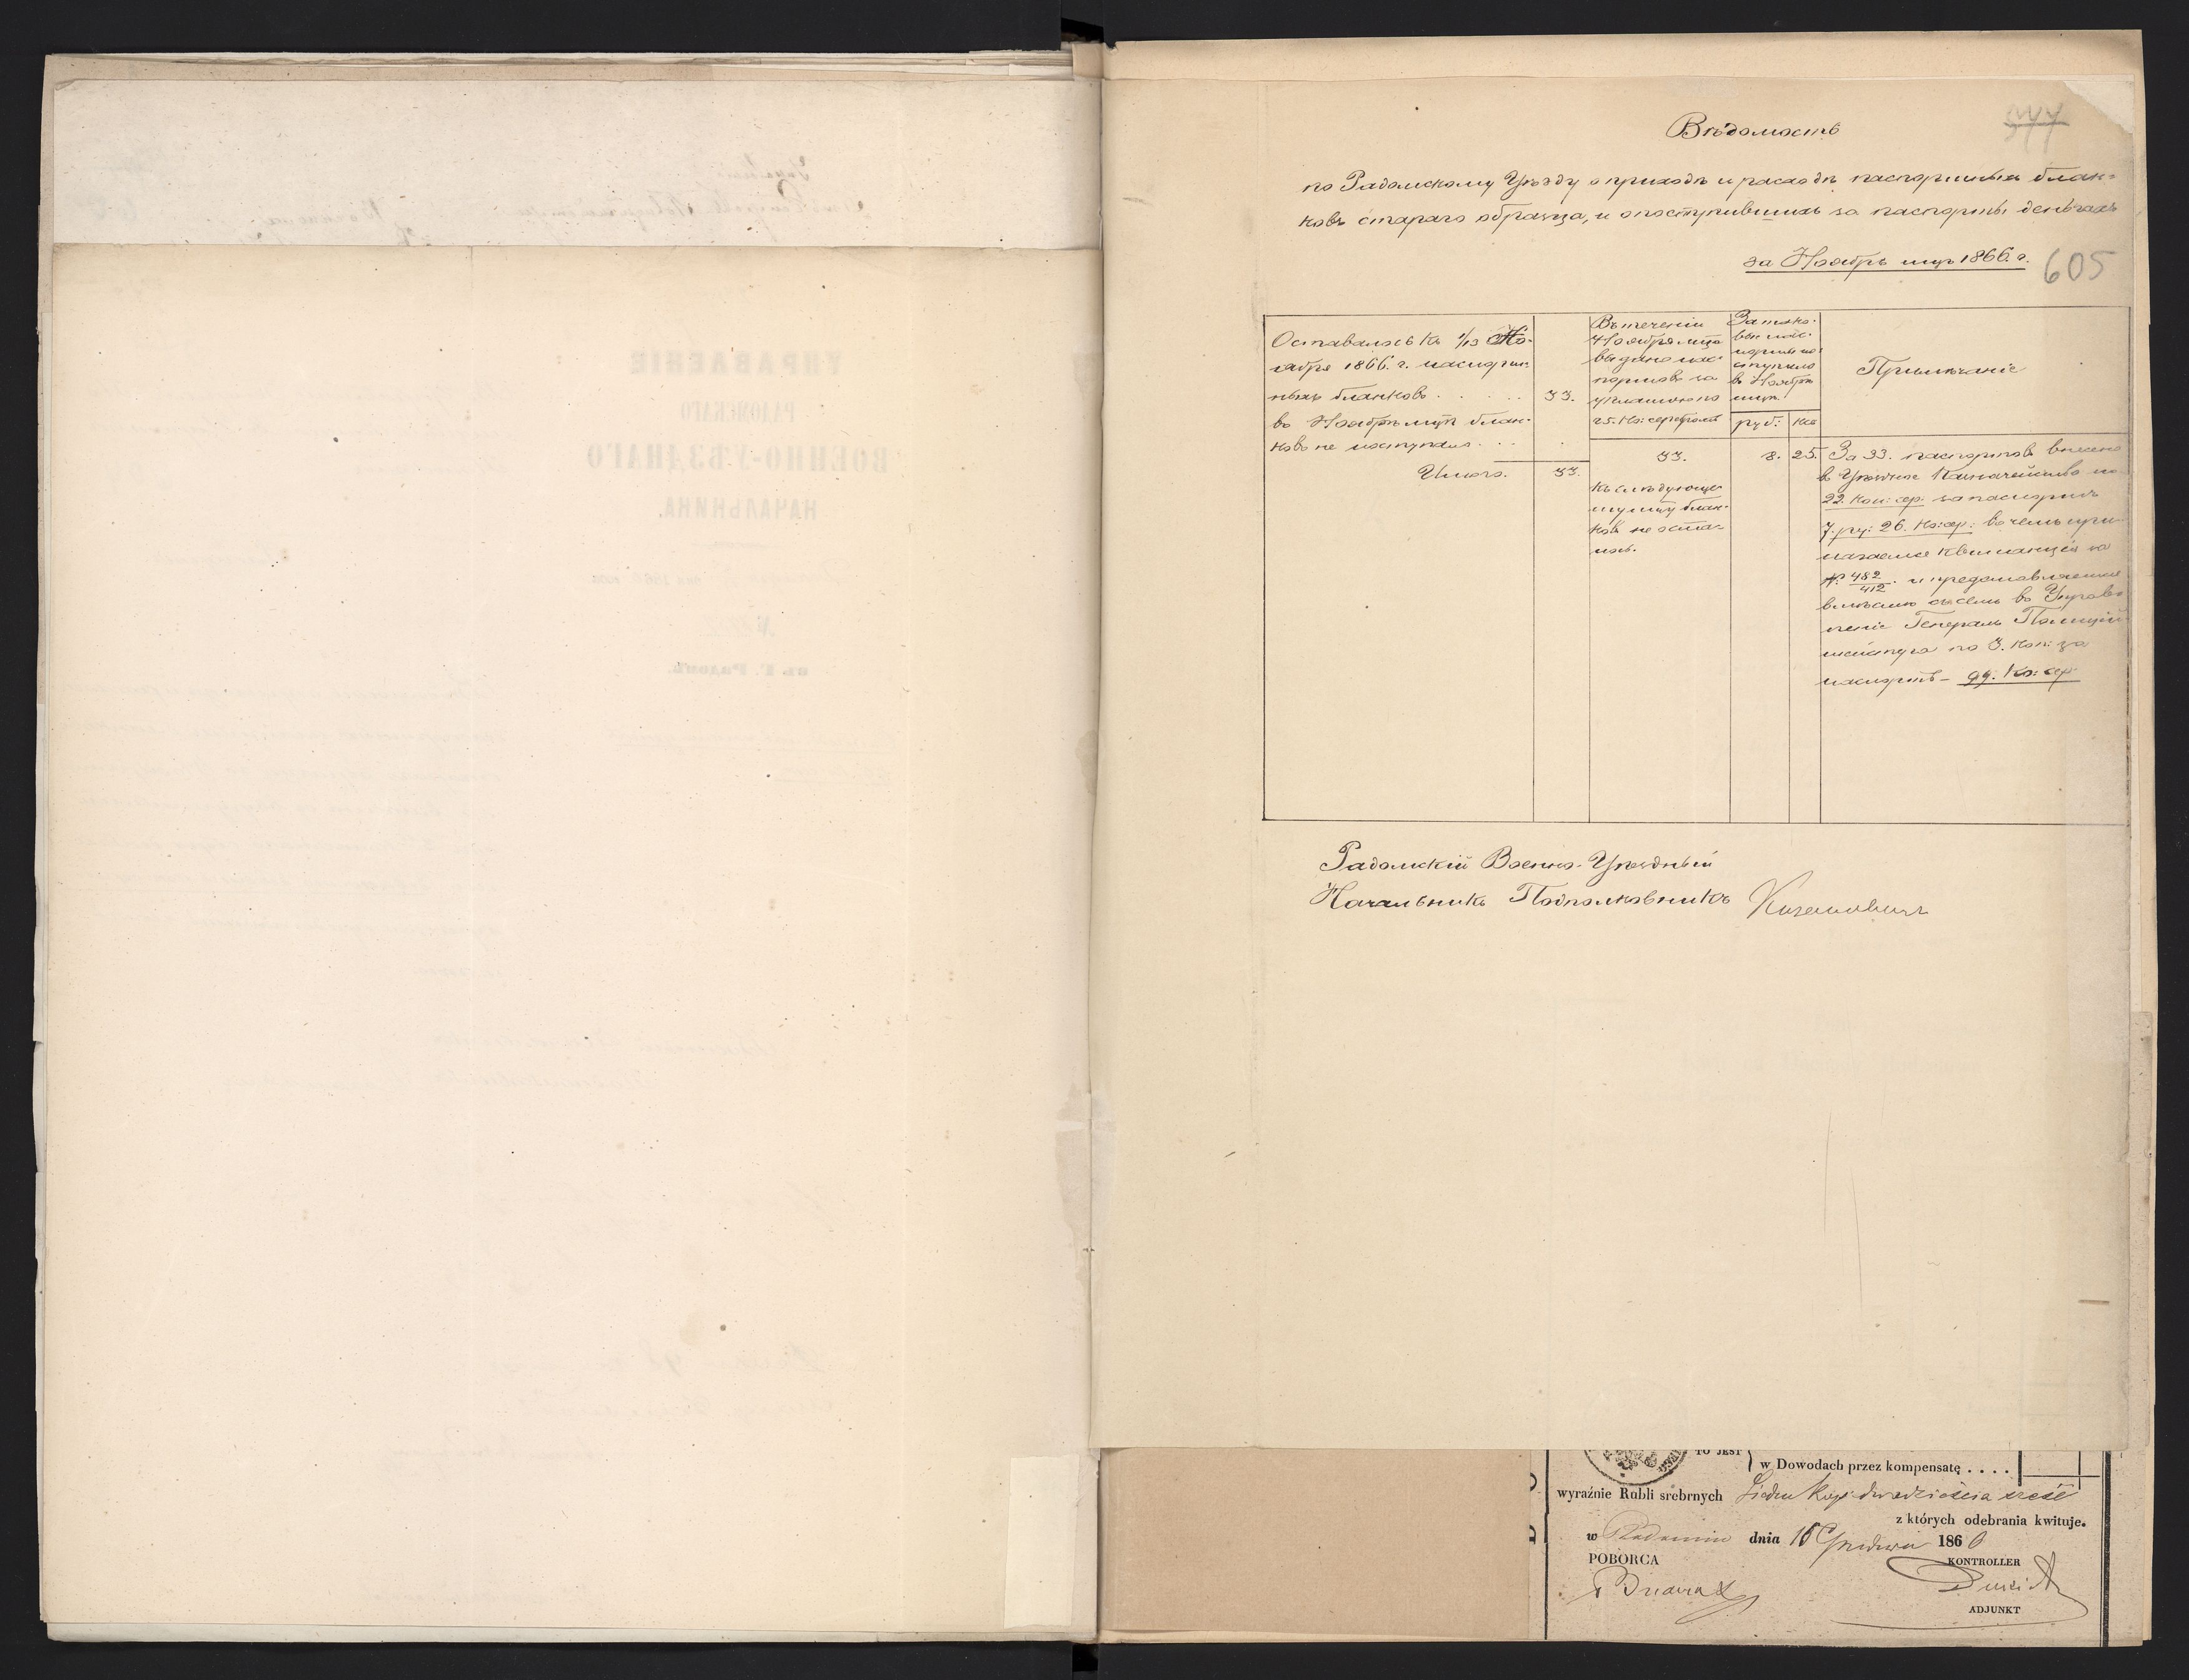 Вѣдомость
377
по Радомскому Уѣзду о приходѣ и расходѣ паспортныхъ блан-
ковъ стараго образца, и о поступившихъ за паспорты деньгахъ
за Ноябрь мцъ 1866. г.
605
Оставалось къ 1/13 Но-
ября 1866. г. паспорт-
ныхъ бланковъ . . . . . 33.
въ Ноябрѣ мцѣ блан-
ковъ не поступало . . .
Итого. 33.
Въ теченіи
Ноября мца
выдано пас-
портовъ за
уплатою по
25. ко: серебромъ
33.
Къ слѣдующе-
му мцу блан-
ковъ не оста-
лось.
За тако-
вые пас-
порты по-
ступило
въ Ноябрѣ
мцѣ.
руб: ко
8. 25.
Примѣчаніе
За 33. паспортовъ внесено
въ Уѣздное Казначейство по
22. коп: сер. за паспортъ
7. ру: 26. ко: сер: въ чемъ при-
лагаемъ квитанція за
№ 482/412. и представляемые
вмѣстѣ съ симъ въ Управ-
леніе Генералъ Полицій-
мейстера по 3. коп: за
паспортъ – 99. ко: сер.
Радомскій Военно-Уѣздный
Начальникъ Подполковникъ
УПРАВЛЕНІЕ
РАДОМСКАГО
ВОЕННО-УѢЗДНАГО
НАЧАЛЬНИКА.
въ Г. Радомѣ.
TO JEST
w Dowodach przez kompensatę . . . .
wyraźnie Rubli srebrnych Siedm kop: dwadzieścia sześć
z których odebrania kwituje.
w Radomiu dnia 15 Grudnia 1866
POBORCA
KONTROLLER
ADJUNKT